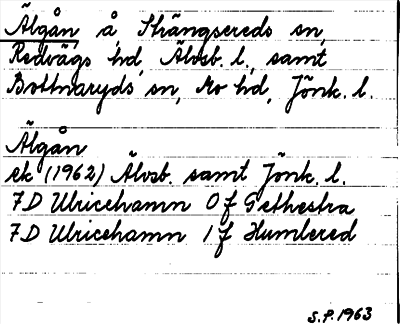 Älgån å Strängsereds sn,
Redvägs hd, Älvsb. l., samt
Bottnaryds sn, Mo hd, Jönk. l.
Älgån
ek (1962) Älvsb. samt Jönk. l.
7D Ulricehamn 0f Gethestra
7D Ulricehamn 1f Humlered
S.P. 1963